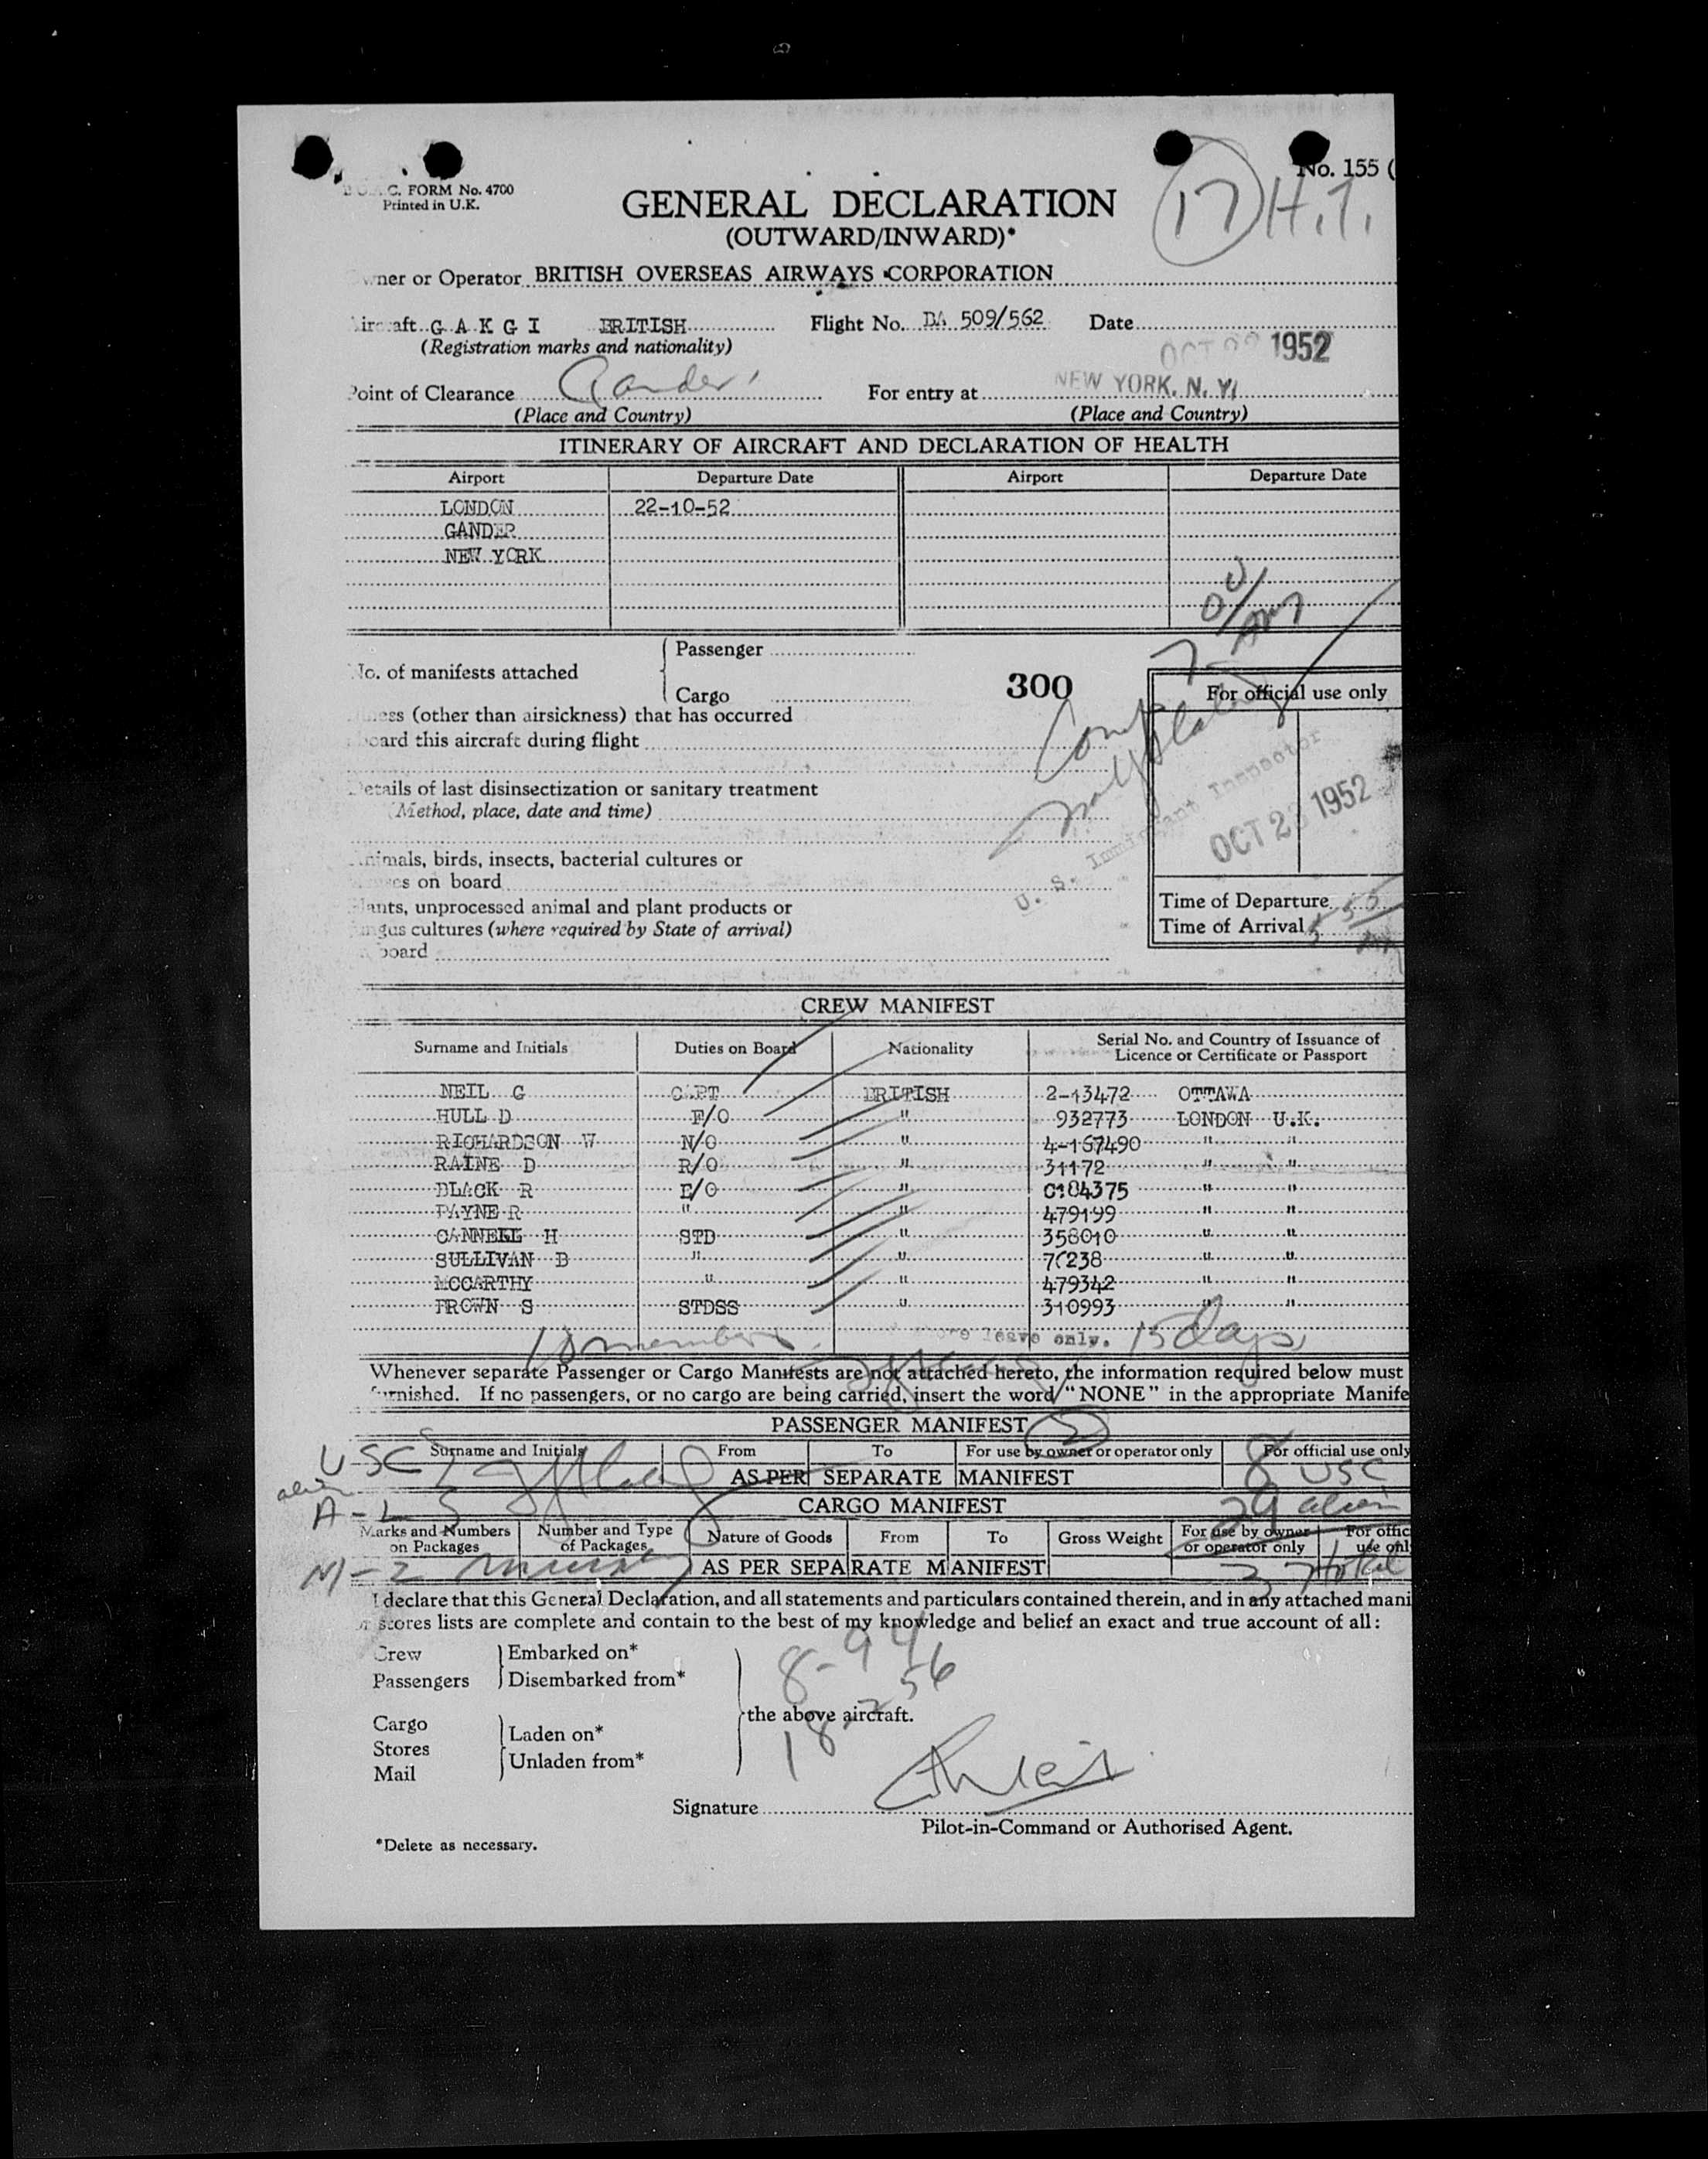 No. 155 (
C. FORM No. 4700
Printed in U.K.
GENERAL DECLARATION
(OUTWARD/INWARD)*
17 H.T.
ner or Operator BRITISH OVERSEAS AIRWAYS CORPORATION
Aircraft G A K G I BRITISH Flight No. BA 509/562 Date OCT 22 1952
(Registration marks and nationality)
Point of Clearance Gander For entry at NEW YORK, N. Y.
(Place and Country) (Place and Country)
ITINERARY OF AIRCRAFT AND DECLARATION OF HEALTH
Airport Departure Date Airport Departure Date
LONDON 22-10-52
GANDER
NEW YORK
Passenger
No. of manifests attached
Cargo
300
For official use only
ness (other than airsickness) that has occurred
board this aircraft during flight
Details of last disinsectization or sanitary treatment
(Method, place, date and time)
U. S. Immigrant Inspector
OCT 2 1952
Animals, birds, insects, bacterial cultures or
es on board
Plants, unprocessed animal and plant products or
ngus cultures (where required by State of arrival)
board
Time of Departure
Time of Arrival
CREW MANIFEST
Surname and Initials Duties on Board Nationality Serial No. and Country of Issuance of
Licence or Certificate or Passport
NEIL G CAPT BRITISH 2-13472 OTTAWA
HULL D F/O " 932773 LONDON U.K.
RICHARDSON W N/O " 4-167490 " "
RAINE D R/O " 31172 " "
BLACK R E/O " C184375 " "
PAYNE R " " 479199 " "
CANNELL H STD " 358010 " "
SULLIVAN B " " 7(238 " "
MCCARTHY " " 479342 " "
BROWN S STDSS " 310993 " "
10 members ore leave only. 15 days
Whenever separate Passenger or Cargo Manifests are not attached hereto, the information required below must
furnished. If no passengers, or no cargo are being carried, insert the word "NONE" in the appropriate Manife
PASSENGER MANIFEST 2
Surname and Initials From To For use by owner or operator only For official use only
USC
AS PER SEPARATE MANIFEST 8 USC
alien
A-L
CARGO MANIFEST 29 alien
Marks and Numbers on Packages Number and Type of Packages Nature of Goods From To Gross Weight For use by owner or operator only For offic use onl
M-Z AS PER SEPARATE MANIFEST 37 total
I declare that this General Declaration, and all statements and particulars contained therein, and in any attached mani
or stores lists are complete and contain to the best of my knowledge and belief an exact and true account of all:
Crew Embarked on*
Passengers Disembarked from*
the above aircraft.
Cargo
Stores
Mail
Laden on*
Unladen from*
Signature
Pilot-in-Command or Authorised Agent.
*Delete as necessary.